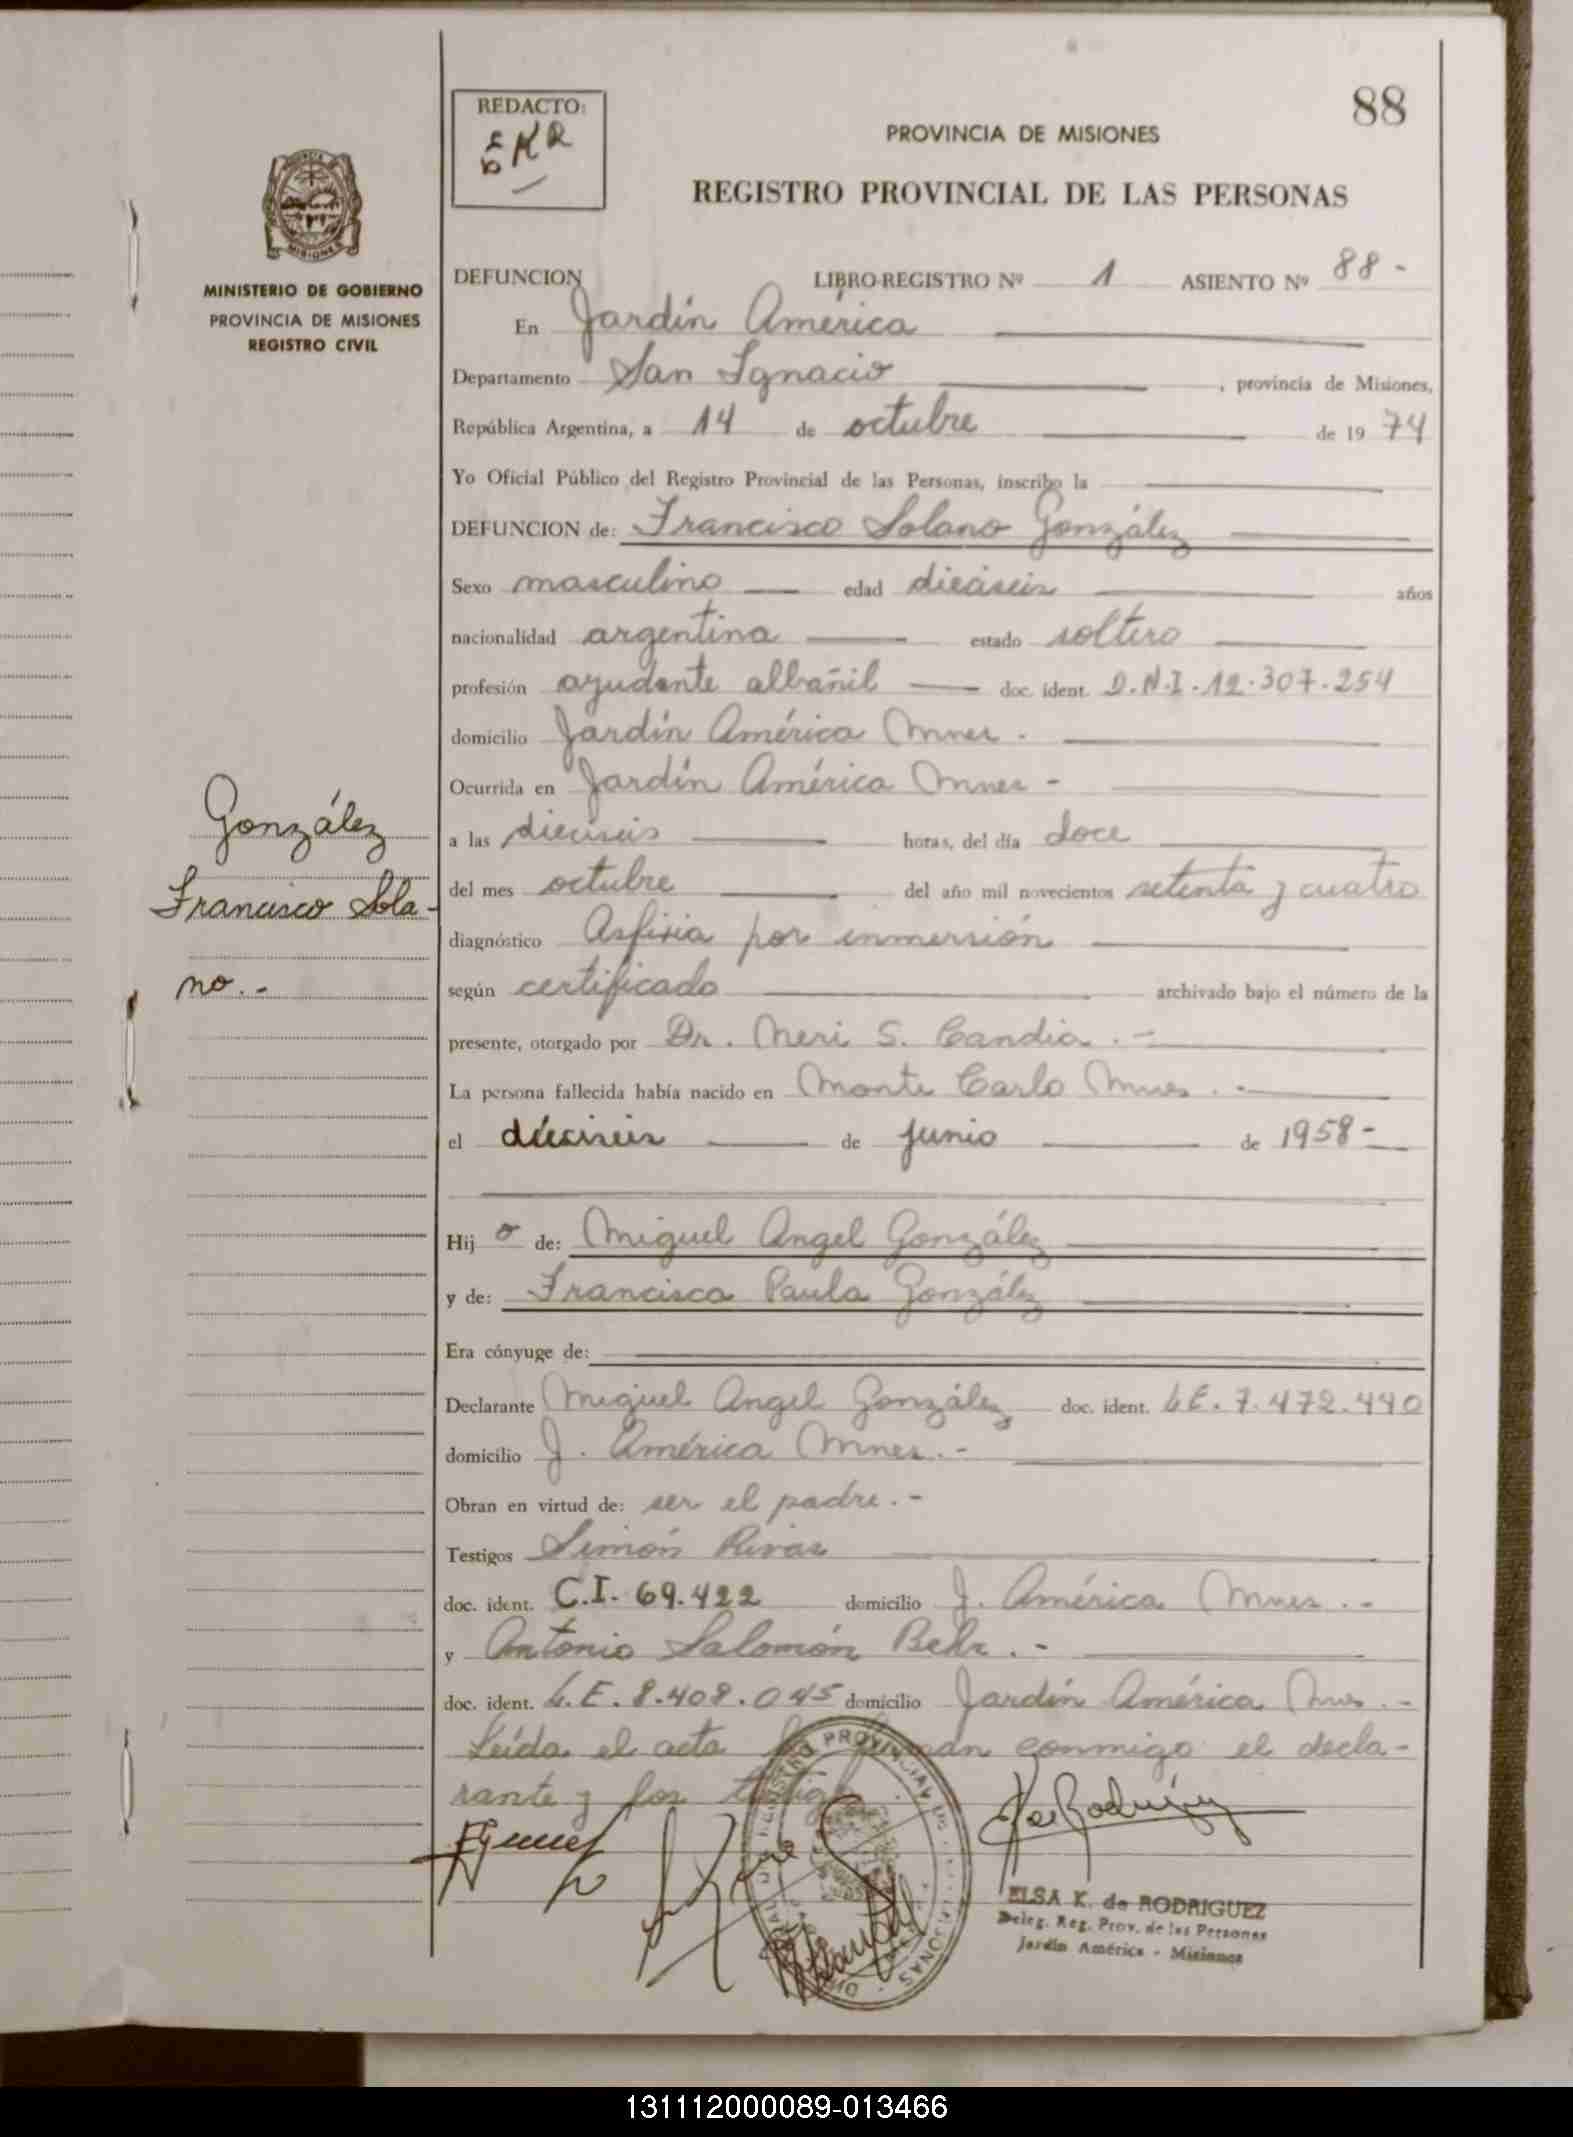 88
REDACTO:
EKR
PROVINCIA DE MISIONES
REGISTRO PROVINCIAL DE LAS PERSONAS
MINISTERIO DE GOBIERNO
PROVINCIA DE MISIONES
REGISTRO CIVIL
DEFUNCION LIBRO-REGISTRO Nº 1 ASIENTO Nº 88-
En Jardín América
Departamento San Ignacio, provincia de Misiones,
República Argentina, a 14 de octubre de 1974
Yo Oficial Público del Registro Provincial de las Personas, inscribo la
DEFUNCION de: Francisco Solano González
Sexo masculino edad dieciseis años
nacionalidad argentina estado soltero
profesión ayudante albañil doc. ident. D.N.I. 12.307.254
domicilio Jardín América Mnes.
Ocurrida en Jardín América Mnes -
González
Francisco Sola-
no.-
a las dieciseis horas, del día doce
del mes octubre del año mil novecientos setenta y cuatro
diagnóstico Asfixia por inmersión
según certificado archivado bajo el número de la
presente, otorgado por Dr. Neri S. Candia.-
La persona fallecida había nacido en Monte Carlo Mnes.-
el dieciseis de junio de 1958-
Hijo de: Miguel Angel González
y de: Francisca Paula González
Era cónyuge de:
Declarante Miguel Angel González doc. ident. L.E. 7.472.440
domicilio J. América Mnes.-
Obran en virtud de: ser el padre.-
Testigos Simón Rivas
doc. ident. C.I. 69.422 domicilio J. América Mnes.-
y Antonio Salomón Behr.-
doc. ident. L.E. 8.408.045 domicilio Jardín América Mnes.-
Leída el acta la firman conmigo el decla-
rante y los testigos
ELSA K. de RODRIGUEZ
Deleg. Reg. Prov. de las Personas
Jardín América - Misiones
131112000089-013466